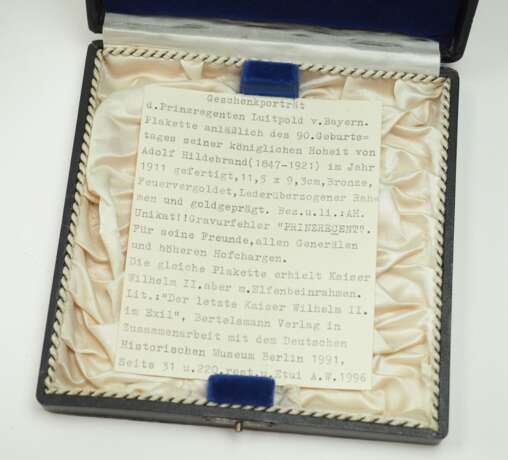 Geschenkporträt
d.Prinzregenten Luitpold v.Bayern.
Plakette anläßlich des 90.Geburts=
tages seiner königlichen Hoheit von
Adolf Hildebrand(1847-1921) im Jahr
1911 gefertigt,11,5 x 9,3cm,Bronze,
Feuervergoldet,Lederüberzogener Rah=
men und goldgeprägt. Bez.u.li.:AH.
Unikat!!Gravurfehler "PRINZRECENT".
Für seine Freunde,allen Generälen
und höheren Hofchargen.
Die gleiche Plakette erhielt Kaiser
Wilhelm II.aber m.Elfenbeinrahmen.
Lit.:"Der letzte Kaiser Wilhelm II.
im Exil", Bertelsmann Verlag in
Zusammenarbeit mit dem Deutschen
Historischen Museum Berlin 1991,
Seite 31 u.220.rest.u.Etui A.W.1996